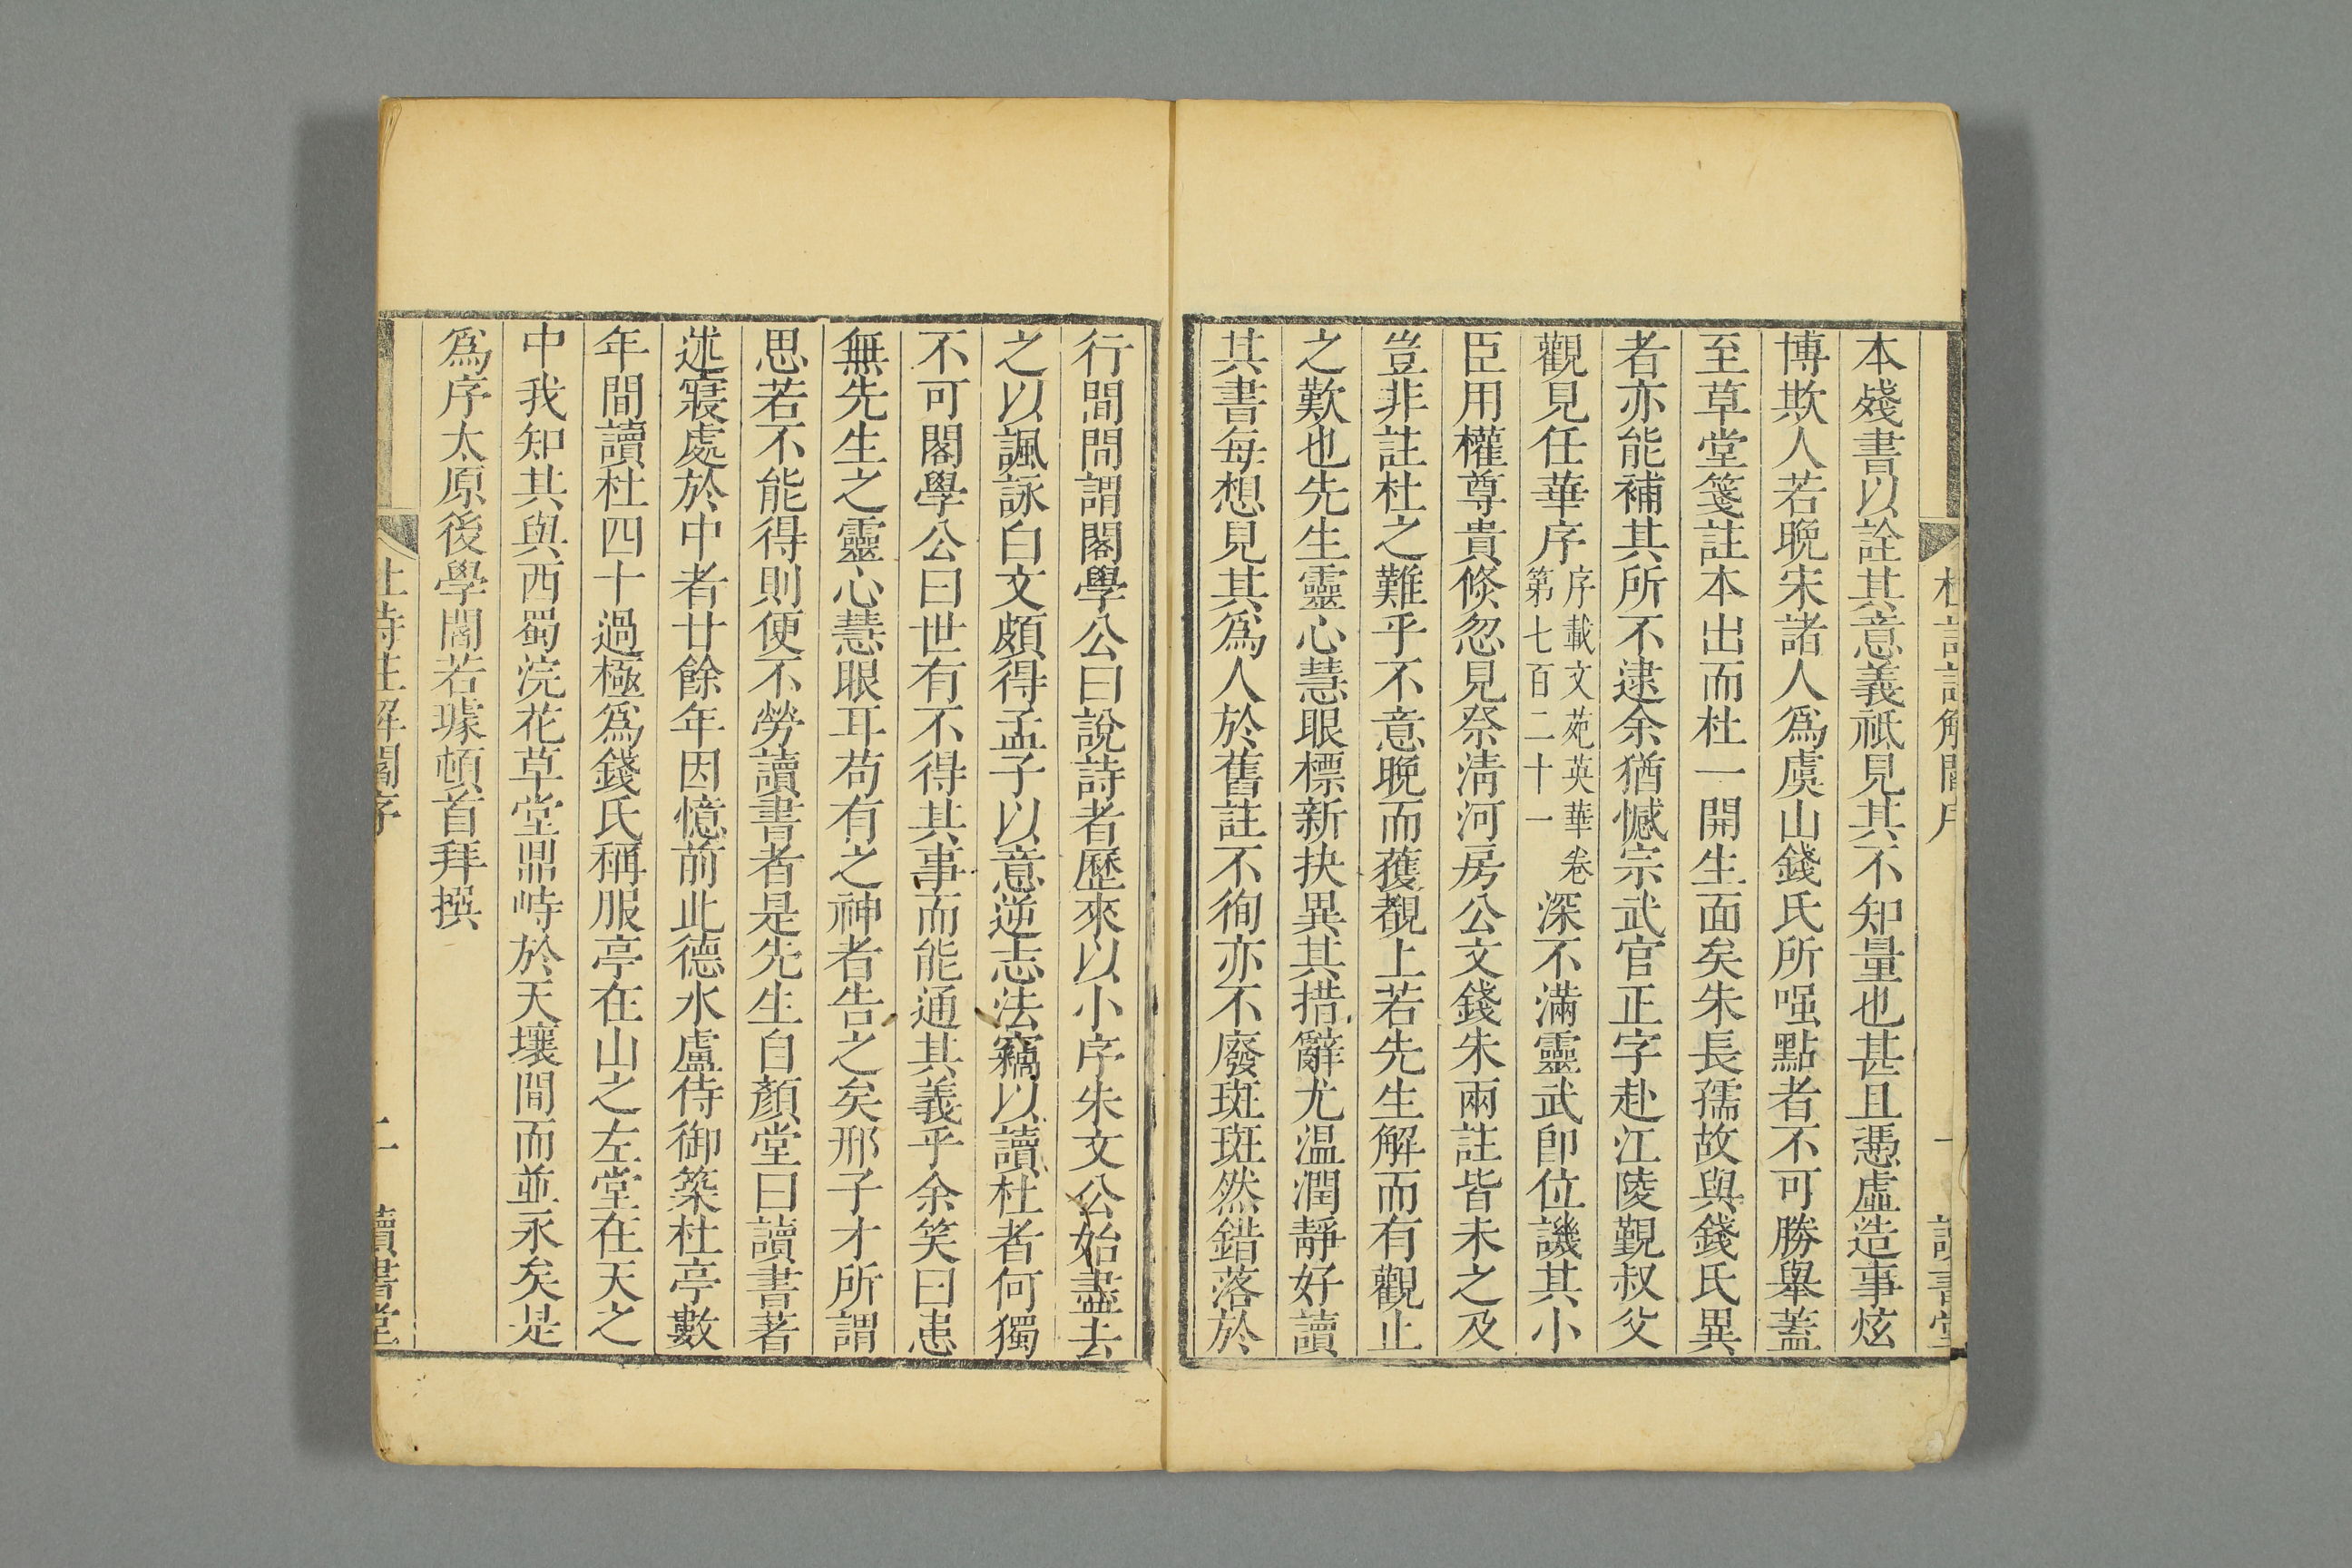 本殘書以詮其意義祗見其不知量也甚且憑虛造事炫
博欺人若晚宋諸人爲虞山錢氏所嗤點者不可勝舉蓋
至草堂箋註本出而杜一開生面矣朱長孺故與錢氏異
者亦能補其所不逮余猶憾宗武官正字赴江陵覲叔父
觀見任華序序載文苑英華卷第七百二十一深不滿靈武卽位譏其小
臣用權尊貴倏忽見祭清河房公文錢朱兩註皆未之及
豈非註杜之難乎不意晚而獲覩上若先生解而有觀止
之歎也先生靈心慧眼標新抉異其措辭尤温潤靜好讀
其書每想見其爲人於舊註不徇亦不廢斑斑然錯落於
行間間謂閣學公曰說詩者歷來以小序朱文公始盡去
之以諷詠白文頗得孟子以意逆志法竊以讀杜者何獨
不可閣學公曰世有不得其事而能通其義乎余笑曰患
無先生之靈心慧眼耳苟有之神者告之矣邢子才所謂
思若不能得則便不勞讀書者是先生自顏堂曰讀書著
述寢處於中者廿餘年因憶前此德水盧侍御築杜亭數
年間讀杜四十過極爲錢氏稱服亭在山之左堂在天之
中我知其與西蜀浣花草堂鼎峙於天壤間而並永矣是
爲序太原後學閻若璩頓首拜撰